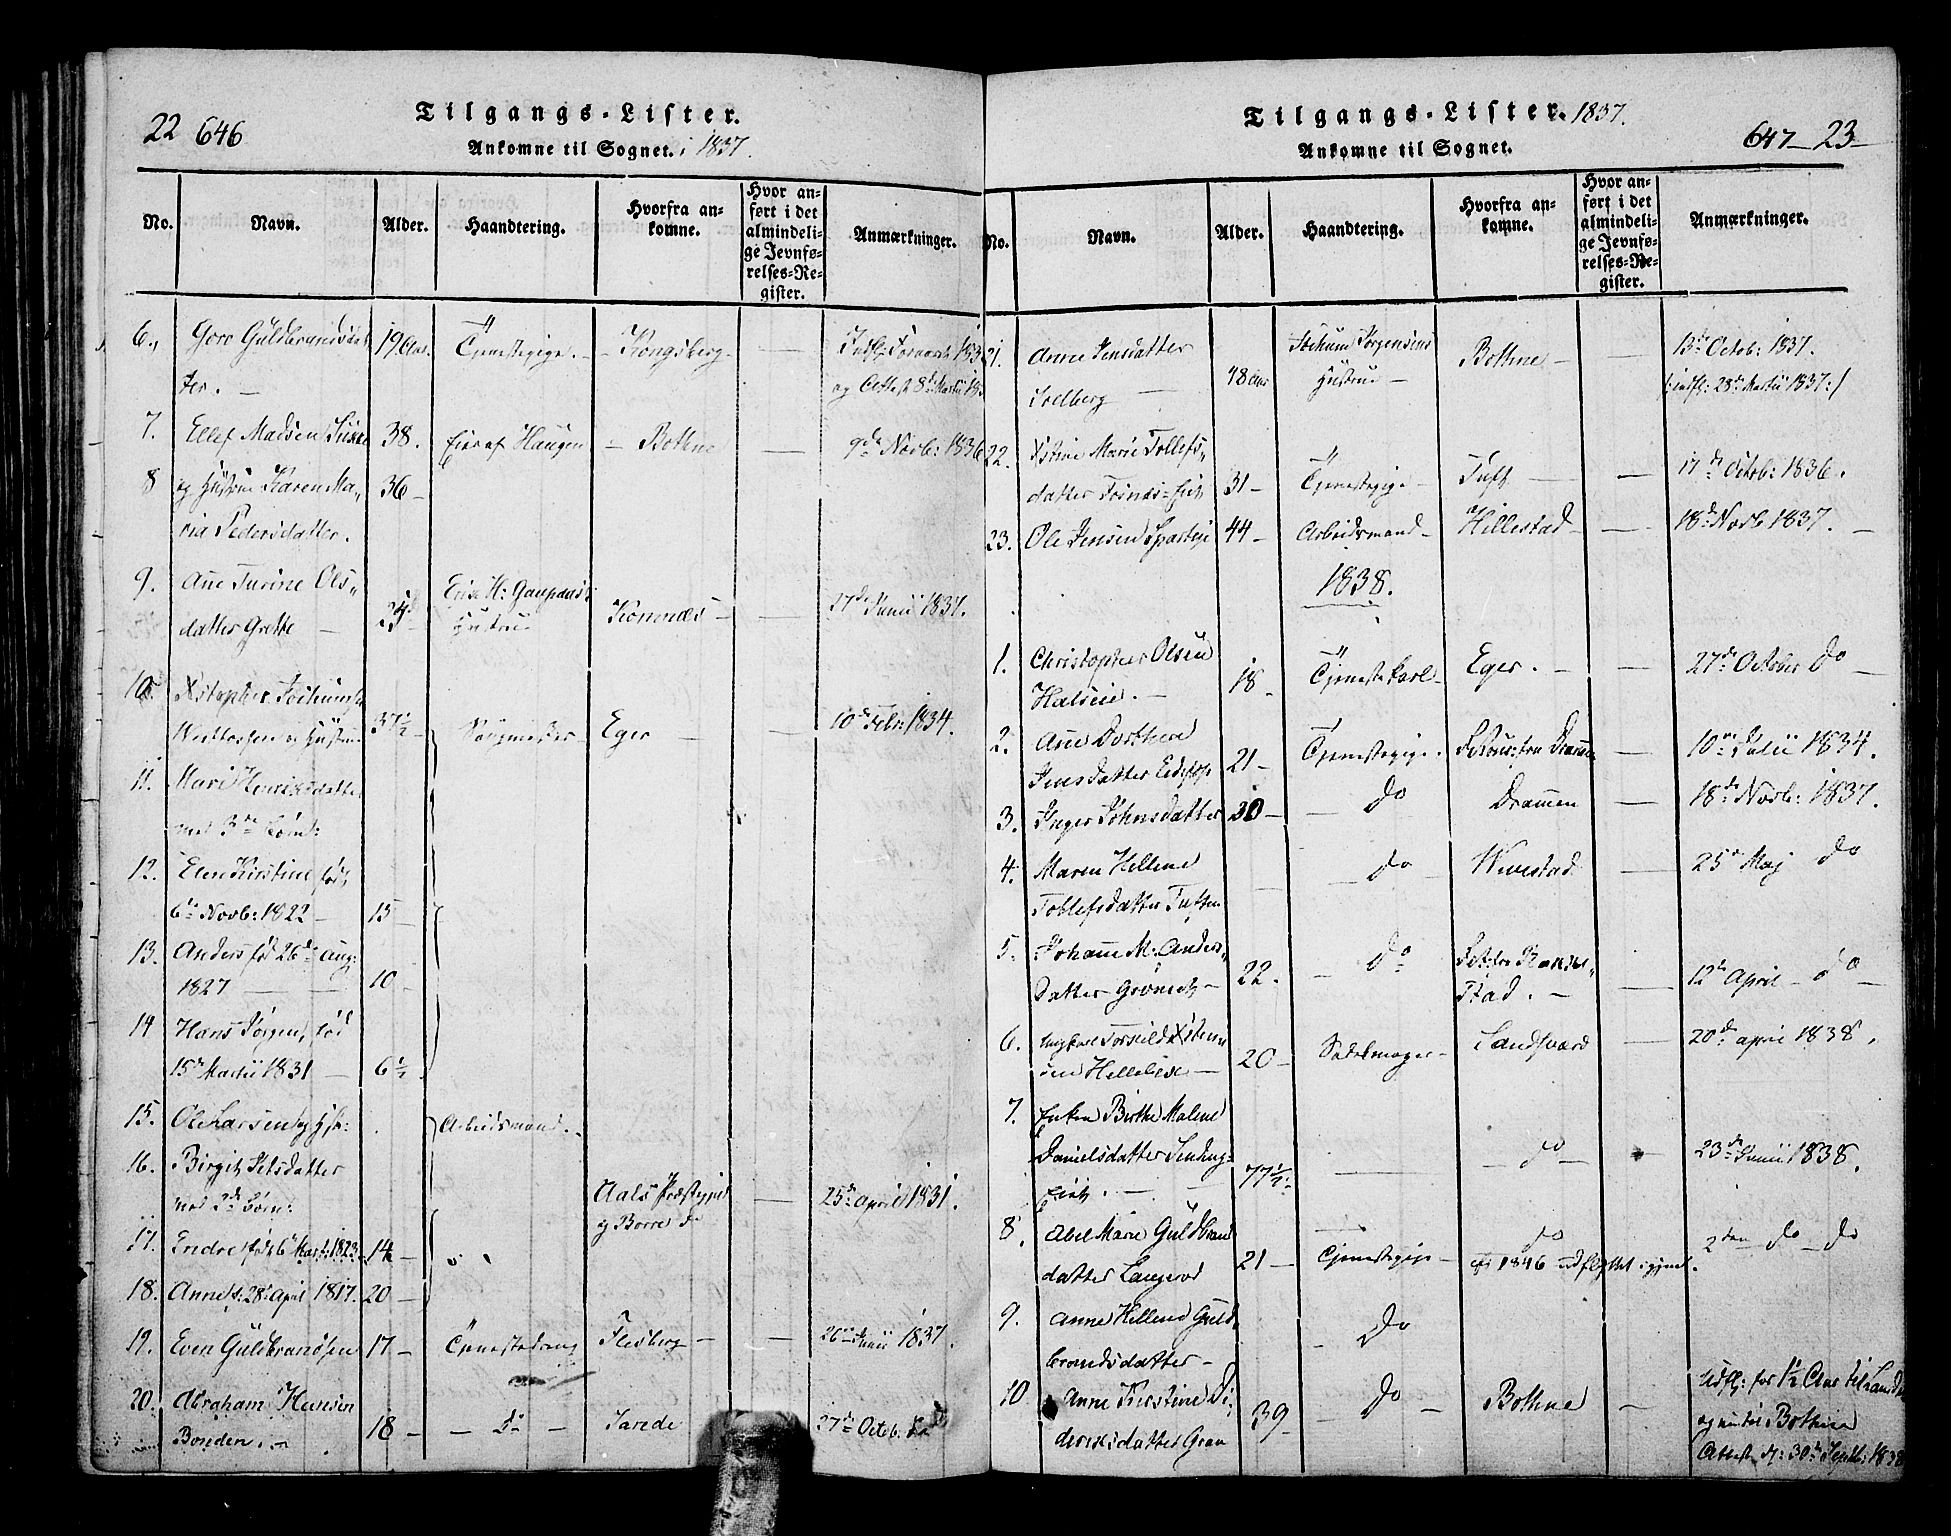 22 646
Tilgangs-Lister.
Ankomne til Sognet. i 1837.
No. Navn. Alder. Haandtering. Hvorfra ankomne. Hvor anført i det almindelige Jevnførelses-Register. Anmærkninger.
6., Goro Guldbrandsdat 19 Aar. Tjenestepige. - Kongsberg -
ter. - og Attest 8de Martii
7. Ellef Madsen 38. Eier af Haugen - Bothne - 9de Novb: 1836
8 og Hustrue Karen Ma„ 36 -
ria Pedersdatter.
9. Ane Turine Ols„
datter Grette - Hustrue Komnæs - - 17de Junii 1837.
10. Xstopher Jochumsen
og Hustrue 37½ - Eger - - 10de Febr: 1834.
11. Mari Henriksdatter
med 3de Børn:
12. Elen Kirstine født
6te Novb: 1822 - 15 -
13. Anders fød 26de Aug:
1827 - 10 -
14 Hans Jørgen, fød
15de Martii 1831 - 6½
15. Ole Larsen og Hst: Arbeidsmand.
16. Birgit datter
med 2de Børn: Aals Præstegield - 25de April 1831.
og Borre do
17. Endre født 6te Mart: 1823 - 14 -
18. Anne f: 28 April 1817. 20 -
19. Even Guldbrandsen 17 - Tjenestedreng Flesberg - - 26de Junii 1837.
20. Abraham Hansen
Bonden. - 18 - - do - Sande 27de Octob. do
Tilgangs-Lister. 1837.
Ankomne til Sognet.
647 - 23 -
No. Navn. Alder. Haandtering. Hvorfra ankomne. Hvor anført i det almindelige Jevnførelses-Register. Anmærkninger.
21. Anne Jensdatter Jochum Jørgensens Bothne - - 13de Octob: 1837.
Solberg - 48 Aar Hustrue - /: indfl: 28de Martii 1837:/
22. Xstine Marie Tollefs„
datter 31 - Tjenestepige - Tuft - - 17de Octob: 1836.
23. Ole Jensen 44 - Arbeidsmand - Hillestad - - 18de Novb 1837. -
1838.
1. Christopher Olsen
Halseie. - 18 - Tjenestekarl - Eger. - - 27de October do -
2. Ane Dorthea
Jensdatter 21 - Tjenestepige. fra Drammen 10de Julii 1834.
3. Inger Johnsdatter 30 - - do Dramen - 18de Novb: 1837.
4. Maren Hellene - do Wivestad - 25de Maj do
Tollefsdatter Tuften -
5. Johane M: Anders„
datter 22. - do stad. - - 12te April - do -
6. Torkild Xstens
sen 20 - Sadelmager - Sandsværd - 20de April 1838.
7. Enken Birthe Malene
Danielsdatter 77½ - - do - 23de Junii 1838.
8. Abel Marie Guldbrand
datter Langerod 21 - Tjenestepige - do 2den do do
1846 udflyttet igjen.
9. Anne Hellene Guld„
brandsdatter - - do
10 Anne Kirstine Di„
deriksdatter Grav 39 - do - Bothne - Udfl: for 1½ Aar til
Bothne
Attest d: 30te Septb: 1838